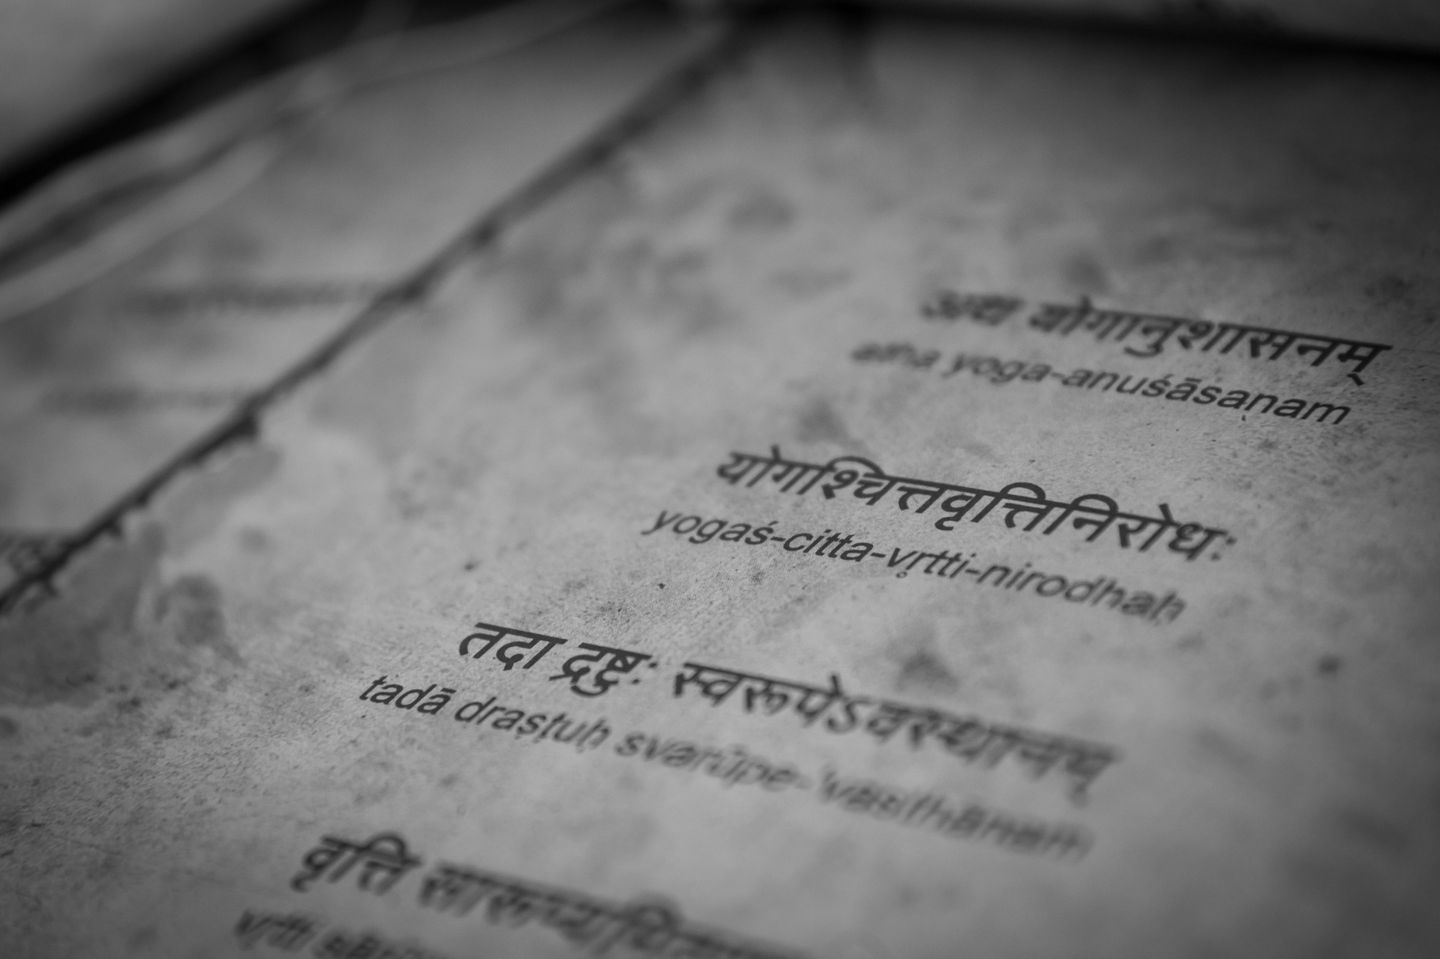 अथ योगानुशासनम्
atha yoga-anuśāsanam
योगश्चित्तवृत्तिनिरोधः
yogaś-citta-vṛtti-nirodhaḥ
तदा द्रष्टुः स्वरूपेऽवस्थानम्
tadā draṣṭuḥ svarūpe-'vasthānam
वृत्ति
vṛtti